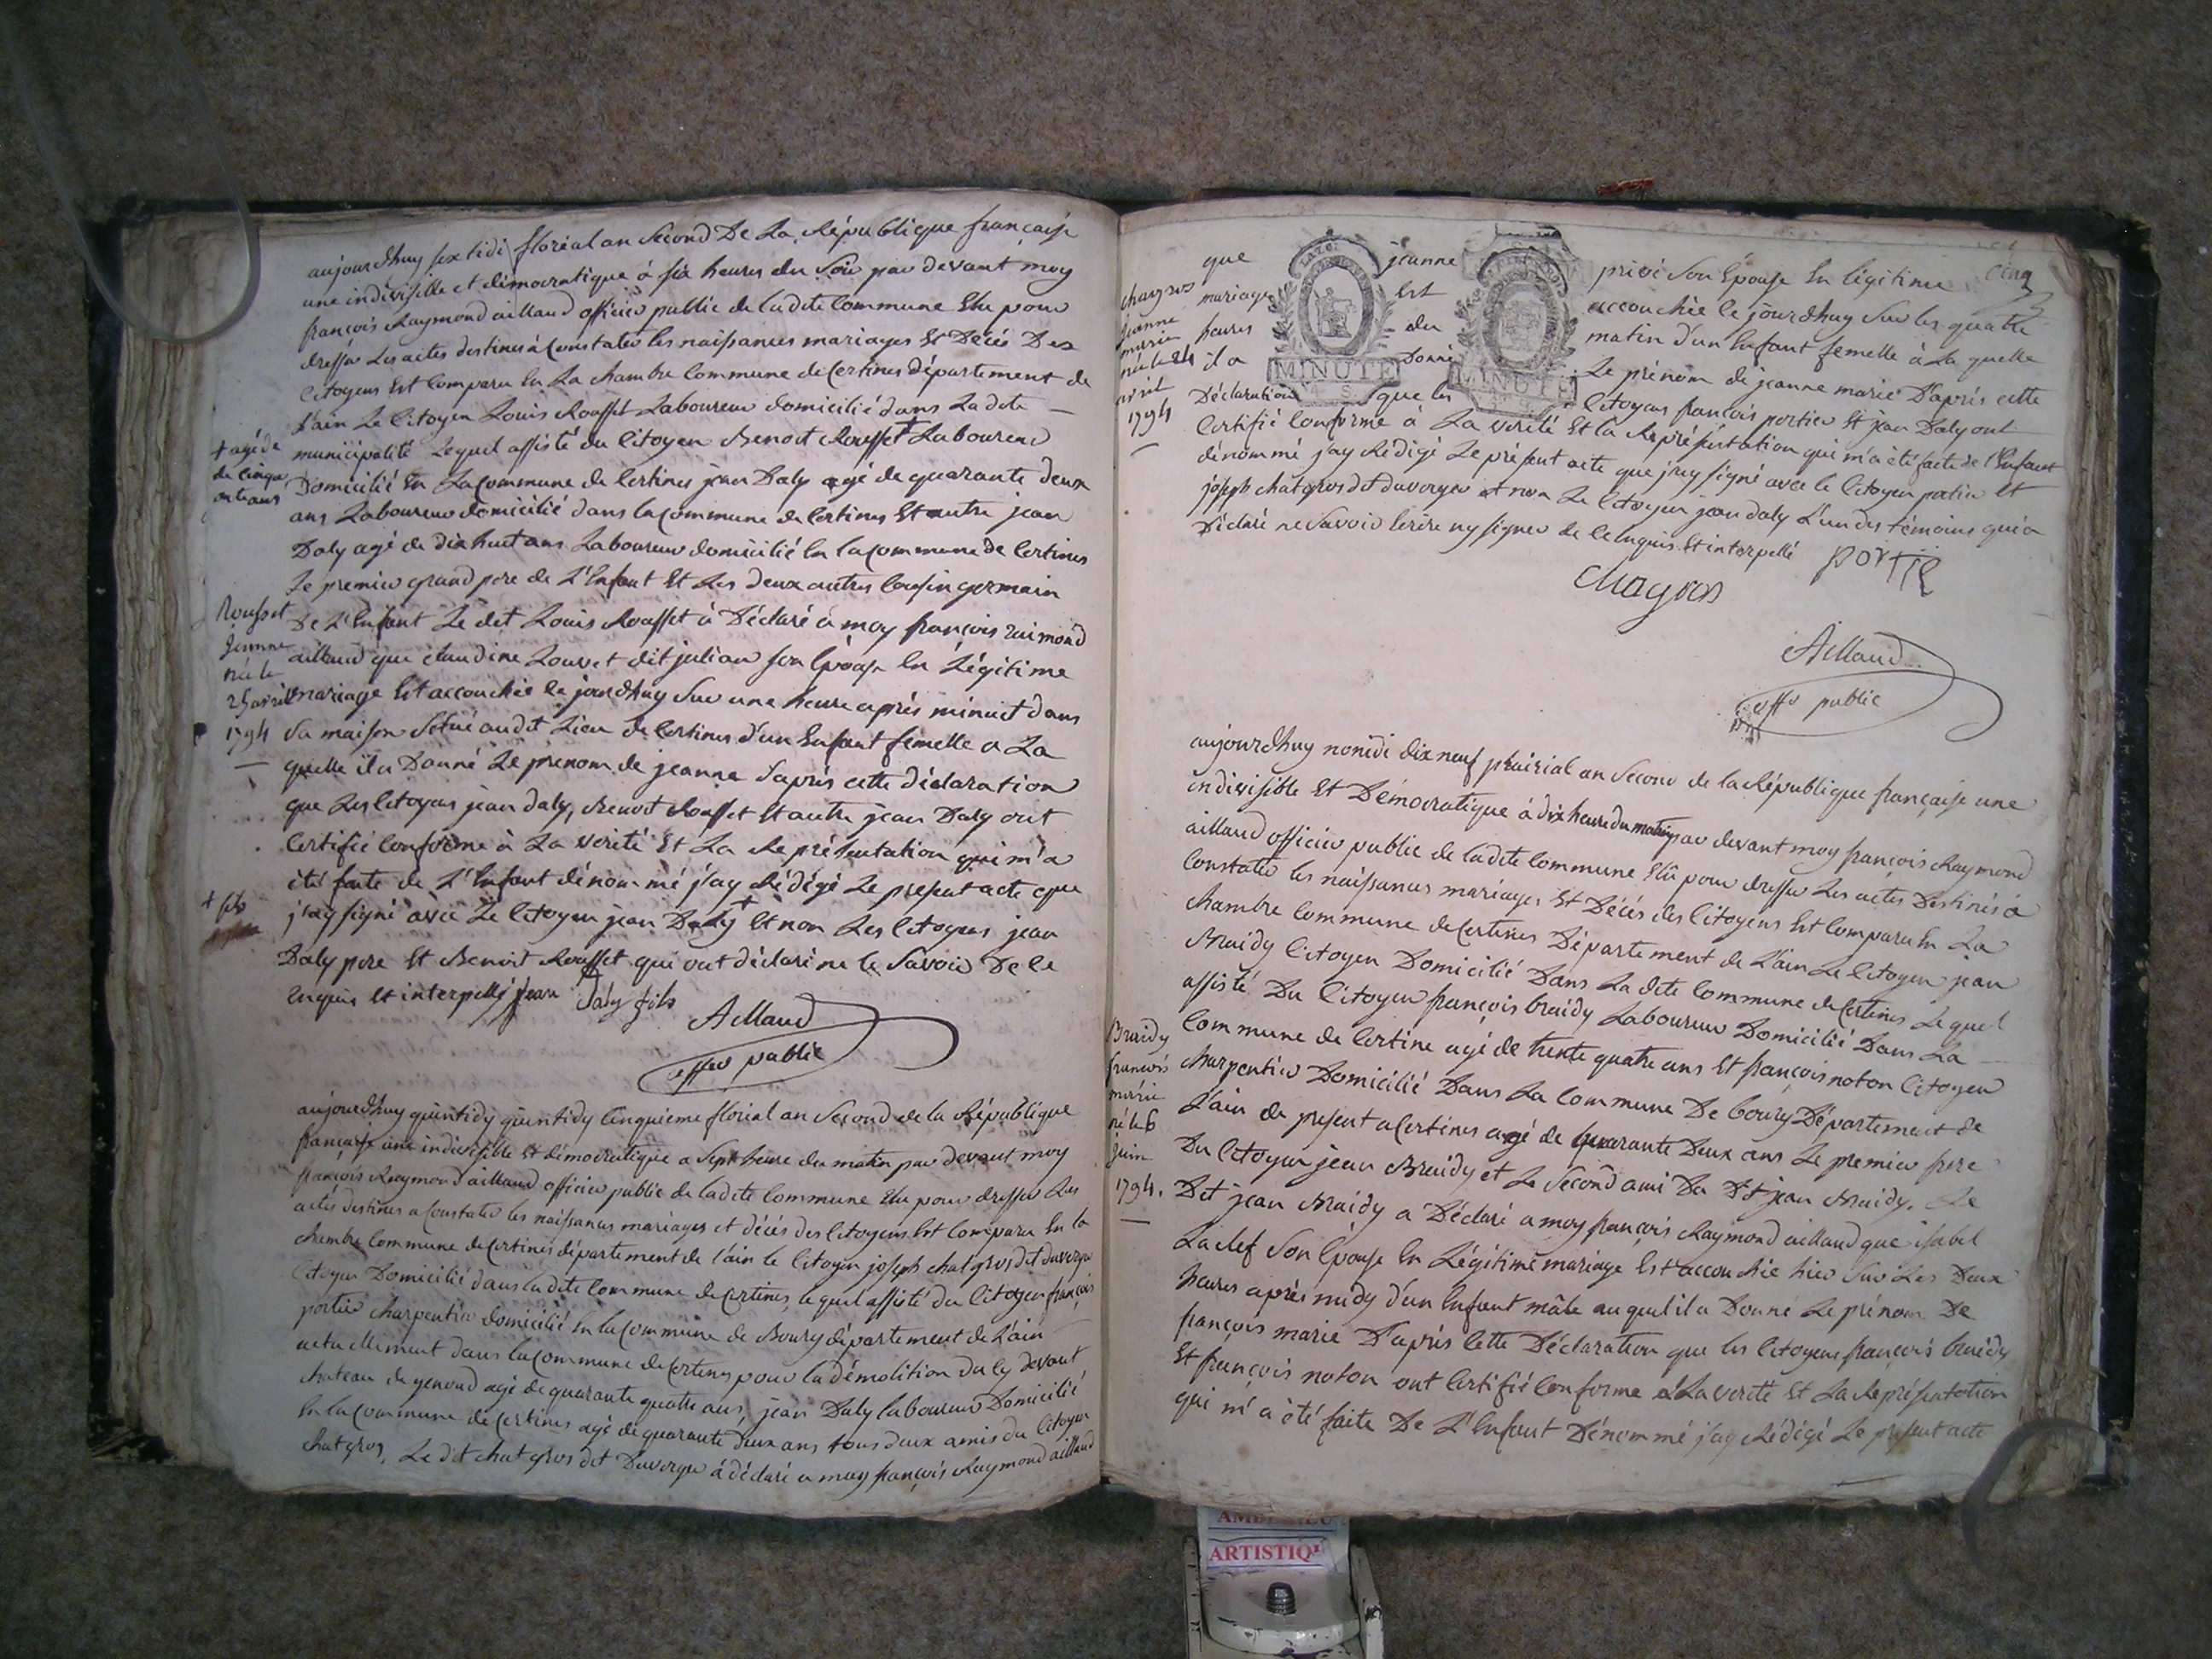 aujourdhuy sextidi floréal an second De La République française
une indivisible et démocratique à six heures du soir par devant moy
françois Raymond aillaud officier public de ladite Commune Elu pour
dresser Les actes destinés à Constater les naissances mariages Et Décés Des
Citoyens Est Comparu En La chambre Commune de Certines département de
L'ain Le Citoyen Louis Rousset Laboureur domicilié dans La dite
municipalité Lequel assisté du Citoyen Benoit Rousset + Laboureur
+ agé de
de cinqu
ante ans
Domicilié En La Commune de Certines jean Daly agé de quarante deux
ans Laboureur domicilié dans la Commune de Certines Et autre jean
Daly agé de dix huit ans Laboureur domicilié En la Commune de Certines
Le premier grand pere de L'Enfant Et Les deux autres Cousin germain
Rousset
Jeanne
née le
25 avril
1794
De L'Enfant Le dit Louis Rousset à Déclaré à moy françois raimond
aillaud que claudine Louvet dit julian son Epouse En Légitime
mariage Est accouchée le jourdhuy Sur une heure après minuit dans
Sa maison Situé audit Lieu de Certines d'un Enfant femelle a La
quelle il a Donné Le prénom de jeanne D'après cette déclaration
que Les Citoyens jean daly, Benoit Rousset Et autre jean Daly ont
Certifié Conforme à La verité Et La Représentation qui m'a
été faite de L'Enfant dénommé j'ay Rédigé Le present acte que
+ fils
j'ay signé avec Le Citoyen jean Daly + Et non Les Citoyens jean
Daly pere Et Benoit Rousset qui ont déclaré ne le Savoir De Ce
Enquis Et interpellé jean Daly fils
Aillaud
offer public
aujourdhuy quintidy quintidy Cinquieme floréal an Second de la République
française une indivisible Et démocratique a Sept heure du matin par devant moy
françois Raymond aillaud officier public de ladite Commune Elu pour dresser Les
actes destinés a Constater les naissances mariages et décés des Citoyens Est Comparu En la
chambre Commune de Certines département de l'ain le Citoyen joseph chatgros dit duverger
Citoyen Domicilié dans ladite Commune de Certines, lequel assisté du Citoyen françois
portier charpentier domicilié En la Commune de Bourg département de L'ain
actuellement dans la Commune de Certines pour la démolition du Cy devant
chateau de genoud agé de quarante quatre ans, jean Daly laboureur Domicilié
En la Commune de Certines agé de quarante deux ans tous deux amis du Citoyen
chatgros, Le dit chatgros dit Duverger à déclaré a moy françois Raymond aillaud
Cinq
que jeanne privé Son Epouse En légitime
mariage Est accouchée le jourdhuy Sur les quatre
heures du matin d'un Enfant femelle à La quelle
il a Donné Le prénom de jeanne marie D'après cette
Déclaration que les Citoyens françois portier Et jean Daly ont
MINUTE
MINUTE
Jeanne
marie
née le 24
avril
1794
Certifié Conforme à La verité Et la Représentation qui m'a été faite de l'Enfant
dénommé j'ay Rédigé Le présent acte que j'ay signé avec le Citoyen portier Et
joseph chatgros dit duverger et non Le Citoyen jean daly L'un des témoins qui a
Déclaré ne Savoir Ecrire ny signer de ce Enquis Et interpellé
Aillaud
offer public
aujourdhuy nonidi dix neuf prairial an Second de la République française une
indivisible Et Démocratique à dix heure du matin par devant moy françois Raymond
aillaud officier public de ladite Commune Elu pour dresser Les actes Destinés à
Constater les naissances mariages Et Décés des Citoyens Est Comparu En La
chambre Commune de Certines Département de L'ain Le Citoyen jean
Braidy Citoyen Domicilié Dans La dite Commune de Certines Lequel
assisté Du Citoyen françois braidy Laboureur Domicilié Dans La
Commune de Certine agé de trente quatre ans Et françois noton Citoyen
Braidy
francois
marie
né le 6
Juin
1794.
charpentier Domicilié Dans La Commune De bourg Département de
L'ain de present a Certines agé de quarante Deux ans Le premier frere
Du Citoyen jean Braidy et Le Second ami Du Dt jean Braidy. Le
Dit jean Braidy a Déclaré a moy françois Raymond aillaud que isabel
Laclef Son Epouse En Légitime mariage Est accouchée hier Sur Les Deux
heures après midy d'un Enfant mâle auquel il a Donné Le prénom De
françois marie D'après Cette Déclaration que les Citoyens françois braidy
Et françois noton ont Certifié Conforme a La verité Et La Représentation
qui m'a été faite De L'Enfant Dénommé j'ay Rédigé Le present acte
ARTISTIQ